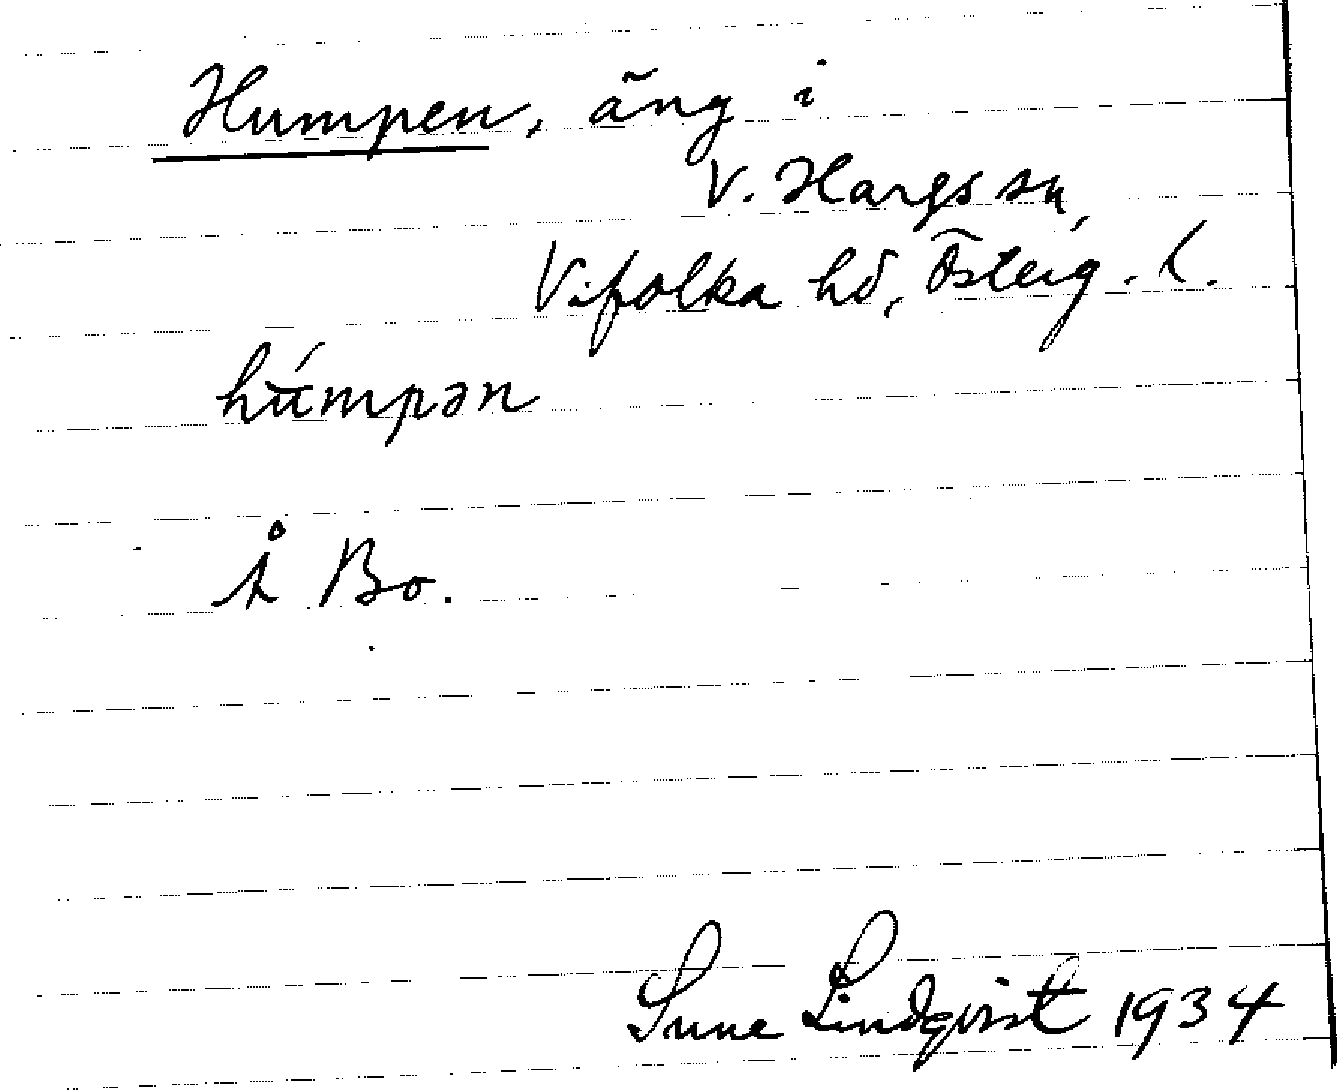 Humpen, äng i
V. Hargs sn,
Vifolka hd, Österg. l.
hu̇́mpən
Å Bo.
Sune Lindqvist 1934